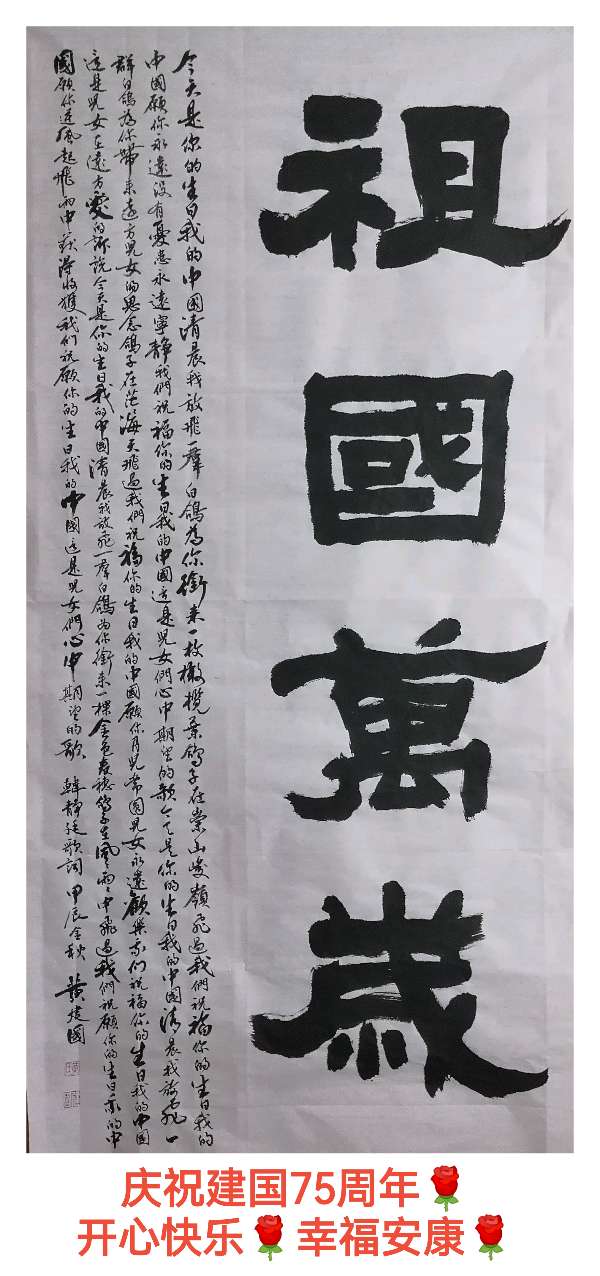 祖國萬歲
今天是你的生日我的中國清晨我放飛一羣白鴿為你銜来一枚橄欖葉鴿子在崇山峻嶺飛過我們祝福你的生日我的
中國願你永遠没有憂患永遠寧静我們祝福你的生日我的中國這是兒女們心中期望的歌今天是你的生日我的中國清晨我放飛一
群白鴿為你帶来遠方兒女的思念鴿子在茫海天飛過我們祝福你的生日我的中國願你月兒常圆兒女永遠歡樂我們祝福你的生日我的中國
這是兒女在遠方愛的訴説今天是你的生日我的中國清晨我放飛一羣白鴿為你銜来一棵金色麦穗鴿子在風風雨雨中飛過我們祝願你的生日我的中
國願你逆風起飛雨中获得收獲我们祝願你的生日我的中國這是兒女們心中期望的歌 韓静廷歌詞 甲辰金秋 黄建國
庆祝建国75周年🌹
开心快乐🌹幸福安康🌹